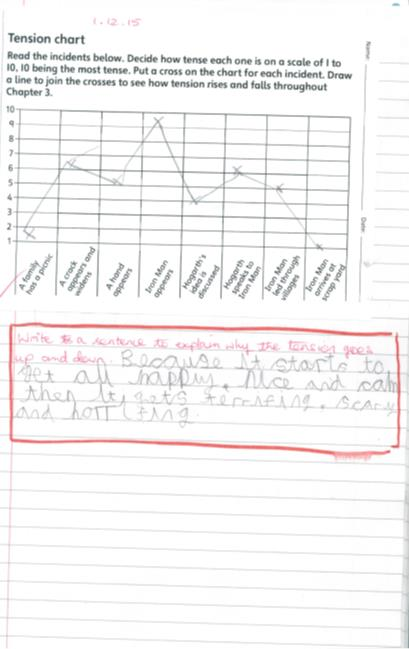 1.12.15
Tension chart
Name:
Read the incidents below. Decide how tense each one is on a scale of 1 to
10, 10 being the most tense. Put a cross on the chart for each incident. Draw
a line to join the crosses to see how tension rises and falls throughout
Chapter 3.
10
9
8
7
6
5
4
3
2
1
Date:
A family
has a picnic
A crack
appears and
widens
A hand
appears
Iron Man
appears
Hogarth's
idea is
discussed
Hogarth
speaks to
Iron Man
Iron Man
led through
villages
Iron Man
arrives at
scrap yard
Write a sentence to explain why the tension goes
up and down. Because it starts to
get all happy. Nice and calm
then it gets terrifing. scary
and horrifing.